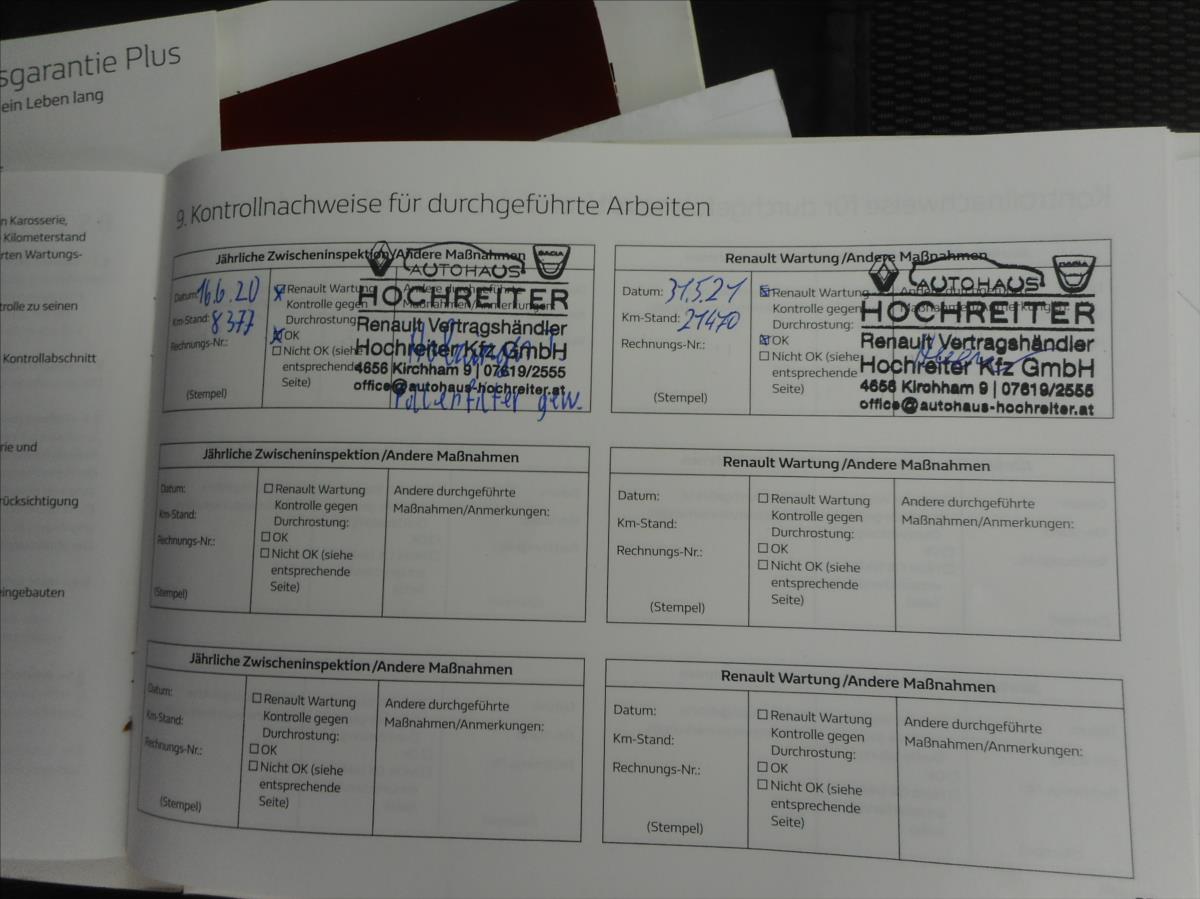 sgarantie Plus
ein Leben lang
n Karosserie,
Kilometerstand
rten Wartungs-
trolle zu seinen
Kontrollabschnitt
rie und
rücksichtigung
eingebauten
9. Kontrollnachweise für durchgeführte Arbeiten
Jährliche Zwischeninspektion/Andere Maßnahmen
Datum: 16.6.20
Km-Stand: 8377
Rechnungs-Nr.:
(Stempel)
Renault Wartung
Kontrolle gegen
Durchrostung:
OK
Nicht OK (siehe
entsprechende
Seite)
Andere durchgeführte
Maßnahmen/Anmerkungen:
DACIA
AUTOHAUS
HOCHREITER
Renault Vertragshändler
Hochreiter Kfz GmbH
4656 Kirchham 9 | 07619/2555
office@autohaus-hochreiter.at
Pollenfilter gew.
Renault Wartung/Andere Maßnahmen
Datum: 31.5.21
Km-Stand: 21470
Rechnungs-Nr.:
(Stempel)
Renault Wartung
Kontrolle gegen
Durchrostung:
OK
Nicht OK (siehe
entsprechende
Seite)
Andere durchgeführte
Maßnahmen/Anmerkungen:
DACIA
AUTOHAUS
HOCHREITER
Renault Vertragshändler
Hochreiter Kfz GmbH
4656 Kirchham 9 | 07619/2555
office@autohaus-hochreiter.at
Jährliche Zwischeninspektion/Andere Maßnahmen
Datum:
Km-Stand:
Rechnungs-Nr.:
(Stempel)
Renault Wartung
Kontrolle gegen
Durchrostung:
OK
Nicht OK (siehe
entsprechende
Seite)
Andere durchgeführte
Maßnahmen/Anmerkungen:
Renault Wartung/Andere Maßnahmen
Datum:
Km-Stand:
Rechnungs-Nr.:
(Stempel)
Renault Wartung
Kontrolle gegen
Durchrostung:
OK
Nicht OK (siehe
entsprechende
Seite)
Andere durchgeführte
Maßnahmen/Anmerkungen:
Jährliche Zwischeninspektion/Andere Maßnahmen
Datum:
Km-Stand:
Rechnungs-Nr.:
(Stempel)
Renault Wartung
Kontrolle gegen
Durchrostung:
OK
Nicht OK (siehe
entsprechende
Seite)
Andere durchgeführte
Maßnahmen/Anmerkungen:
Renault Wartung/Andere Maßnahmen
Datum:
Km-Stand:
Rechnungs-Nr.:
(Stempel)
Renault Wartung
Kontrolle gegen
Durchrostung:
OK
Nicht OK (siehe
entsprechende
Seite)
Andere durchgeführte
Maßnahmen/Anmerkungen: